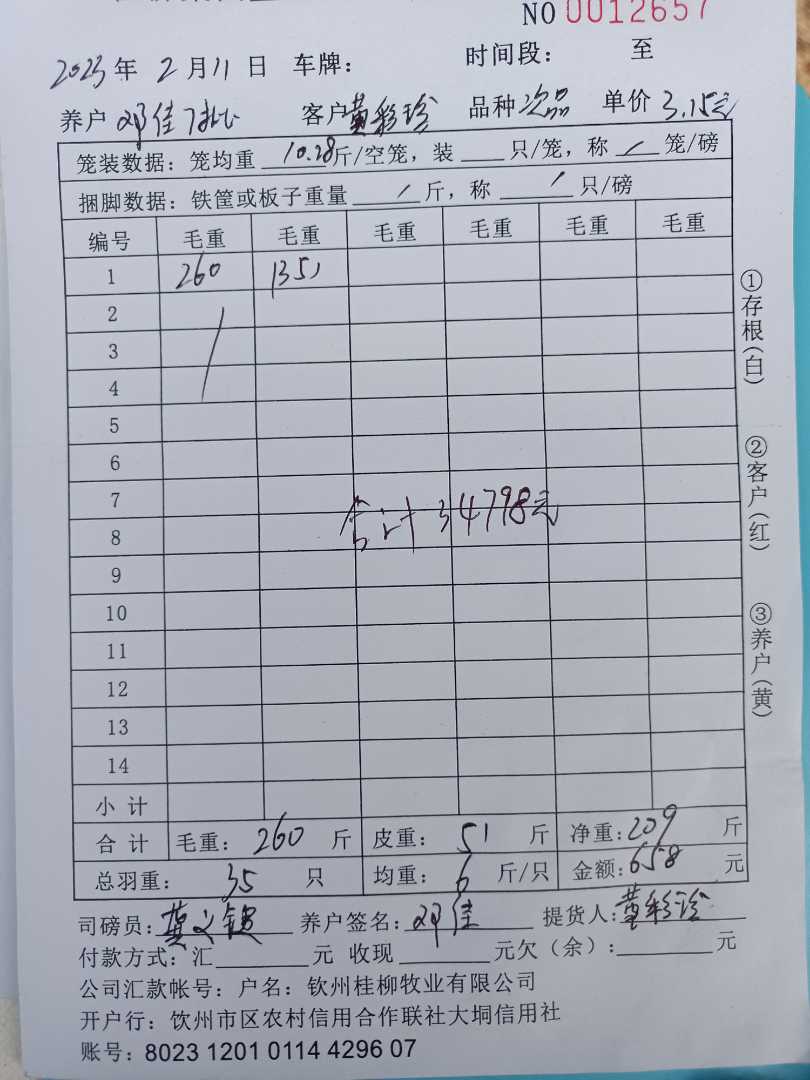 NO 0012657
2023年 2月11日 车牌： 时间段： 至
养户 邓佳7批 客户 黄彩珍 品种 次品 单价 3.15元
笼装数据：笼均重 10.28斤/空笼，装 只/笼，称 / 笼/磅
捆脚数据：铁筐或板子重量 / 斤，称 / 只/磅
编号 毛重 毛重 毛重 毛重 毛重 毛重
1 260 B51
2
3
4
5
6
7
8
合计 34798元
9
10
11
12
13
14
小计
合计 毛重：260 斤 皮重：51 斤 净重：209 斤
总羽重：35 只 均重：6 斤/只 金额：658 元
司磅员： 养户签名：邓佳 提货人：黄彩珍
付款方式：汇 元 收现 元欠（余）： 元
公司汇款帐号：户名：钦州桂柳牧业有限公司
开户行：饮州市区农村信用合作联社大垌信用社
账号：8023 1201 0114 4296 07
①存根（白）
②客户（红）
③养户（黄）